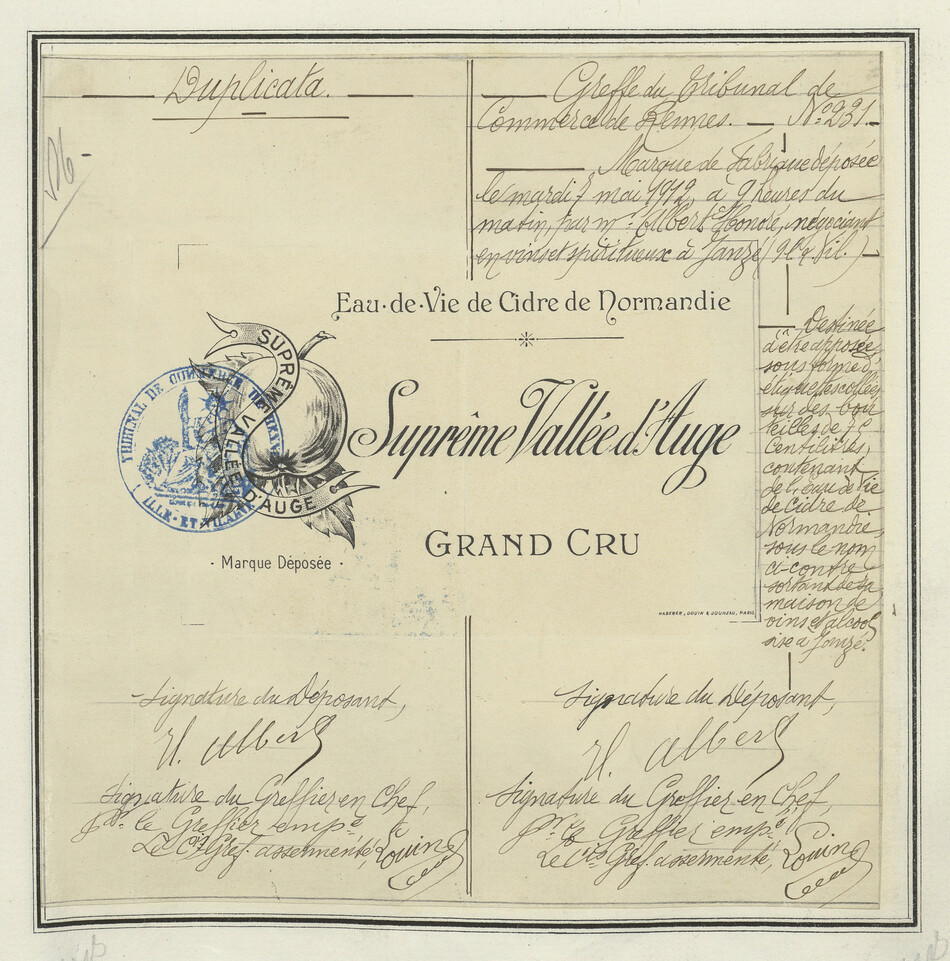 Duplicata.
Greffe du Tribunal de
Commerce de Rennes. — No 231.
Marque de Fabrique déposée
le mardi 7 mai 1912, à 9 heures du
matin, par mr. Albert Honoré, négociant
en vins et spiritueux à Janzé
Eau·de·Vie de Cidre de Normandie
SUPRÊME VALLÉE D'AUGE
TRIBUNAL DE COMMERCE DE RENNES
ILLE-ET-VILAINE
Suprême Vallée d'Auge
GRAND CRU
· Marque Déposée ·
HABERER, DOUIN & JOUNEAU, PARIS
Destinée
d'être apposée
sous forme d'
étiquettes collées
sur des bou
teilles de
Centilitres,
contenant
de l'eau de Vie
de Cidre de
Normandie,
sous le nom
ci-contre
sortant de sa
maison de
vins et alcool
sise à Janzé.
Signature du Déposant,
H. Albert
Signature du Greffier en Chef,
le Greffier empé
Le Cis Gref. assermenté,
Signature du Déposant,
H. Albert
Signature du Greffier en Chef,
le Greffier empé
Le Cis Gref. assermenté,